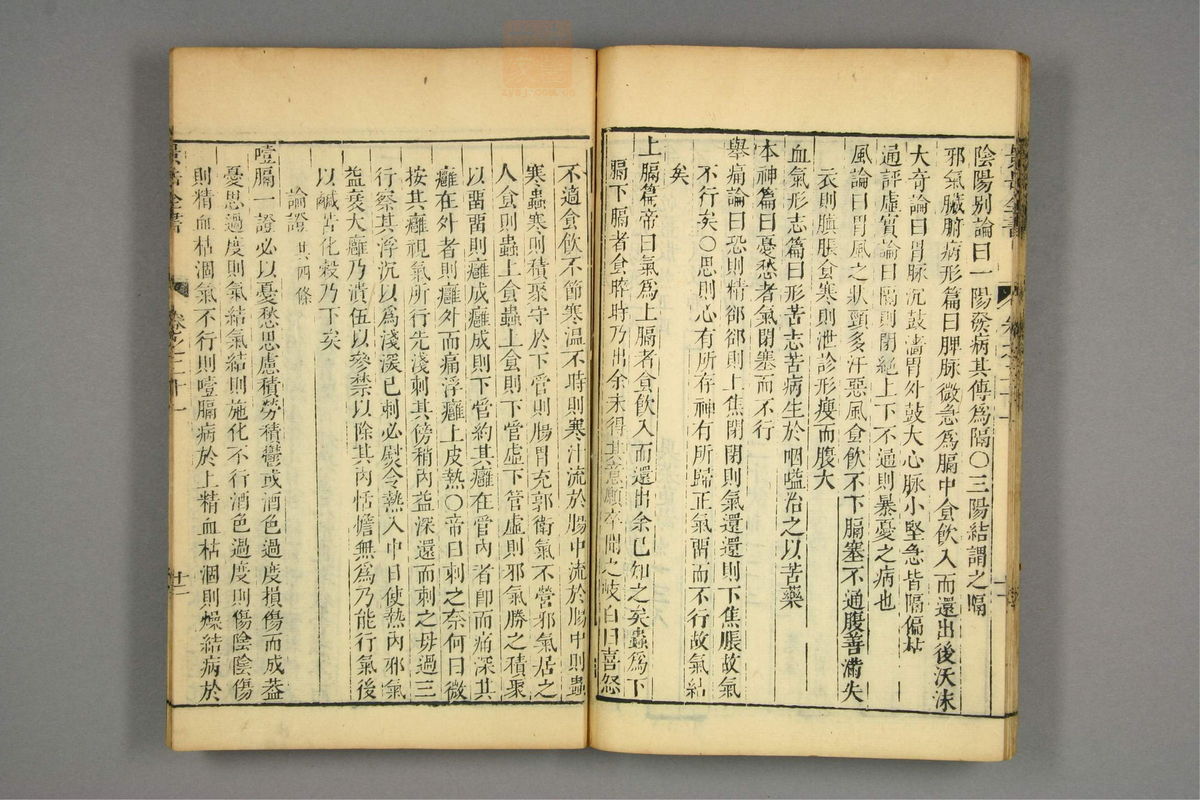 陰陽别論曰一陽發病其傳爲隔〇三陽結謂之隔
邪氣臟腑病形篇曰脾脉微急爲膈中食飲入而還出後沃沫
大奇論曰胃脉沉鼓濇胃外鼓大心脉小堅急皆隔偏枯
通評虛實論曰隔則閉絕上下不通則暴憂之病也
風論曰胃風之狀頸多汗惡風食飲不下膈塞不通腹善滿失
衣則䐜脹食寒則泄診形瘦而腹大
血氣形志篇曰形苦志苦病生於咽嗌治之以苦藥
本神篇曰憂愁者氣閉塞而不行
舉痛論曰恐則精郤郤則上焦閉閉則氣還還則下焦脹故氣
不行矣〇思則心有所存神有所歸正氣畱而不行故氣結
矣
上膈篇帝曰氣爲上膈者食飲入而還出余已知之矣蟲爲下
膈下膈者食晬時乃出余未得其意願卒聞之岐伯曰喜怒
不適食飲不節寒温不時則寒汁流於腸中流於腸中則蟲
寒蟲寒則積聚守於下管則腸胃充郭衛氣不營邪氣居之
人食則蟲上食蟲上食則下管虛下管虛則邪氣勝之積聚
以畱畱則癰成癰成則下管約其癰在管內者卽而痛深其
癰在外者則癰外而痛浮癰上皮熱〇帝曰刺之奈何曰微
按其癰視氣所行先淺刺其傍稍內益深還而刺之毋過三
行察其浮沉以爲淺深已刺必熨令熱入中日使熱內邪氣
益衰大癰乃潰伍以參禁以除其內恬憺無爲乃能行氣後
以鹹苦化穀乃下矣
論證 共四條
噎膈一證必以憂愁思慮積勞積鬱或酒色過度損傷而成葢
憂思過度則氣結氣結則施化不行酒色過度則傷陰陰傷
則精血枯涸氣不行則噎膈病於上精血枯涸則燥結病於
景岳全書
卷之二十一
廿二